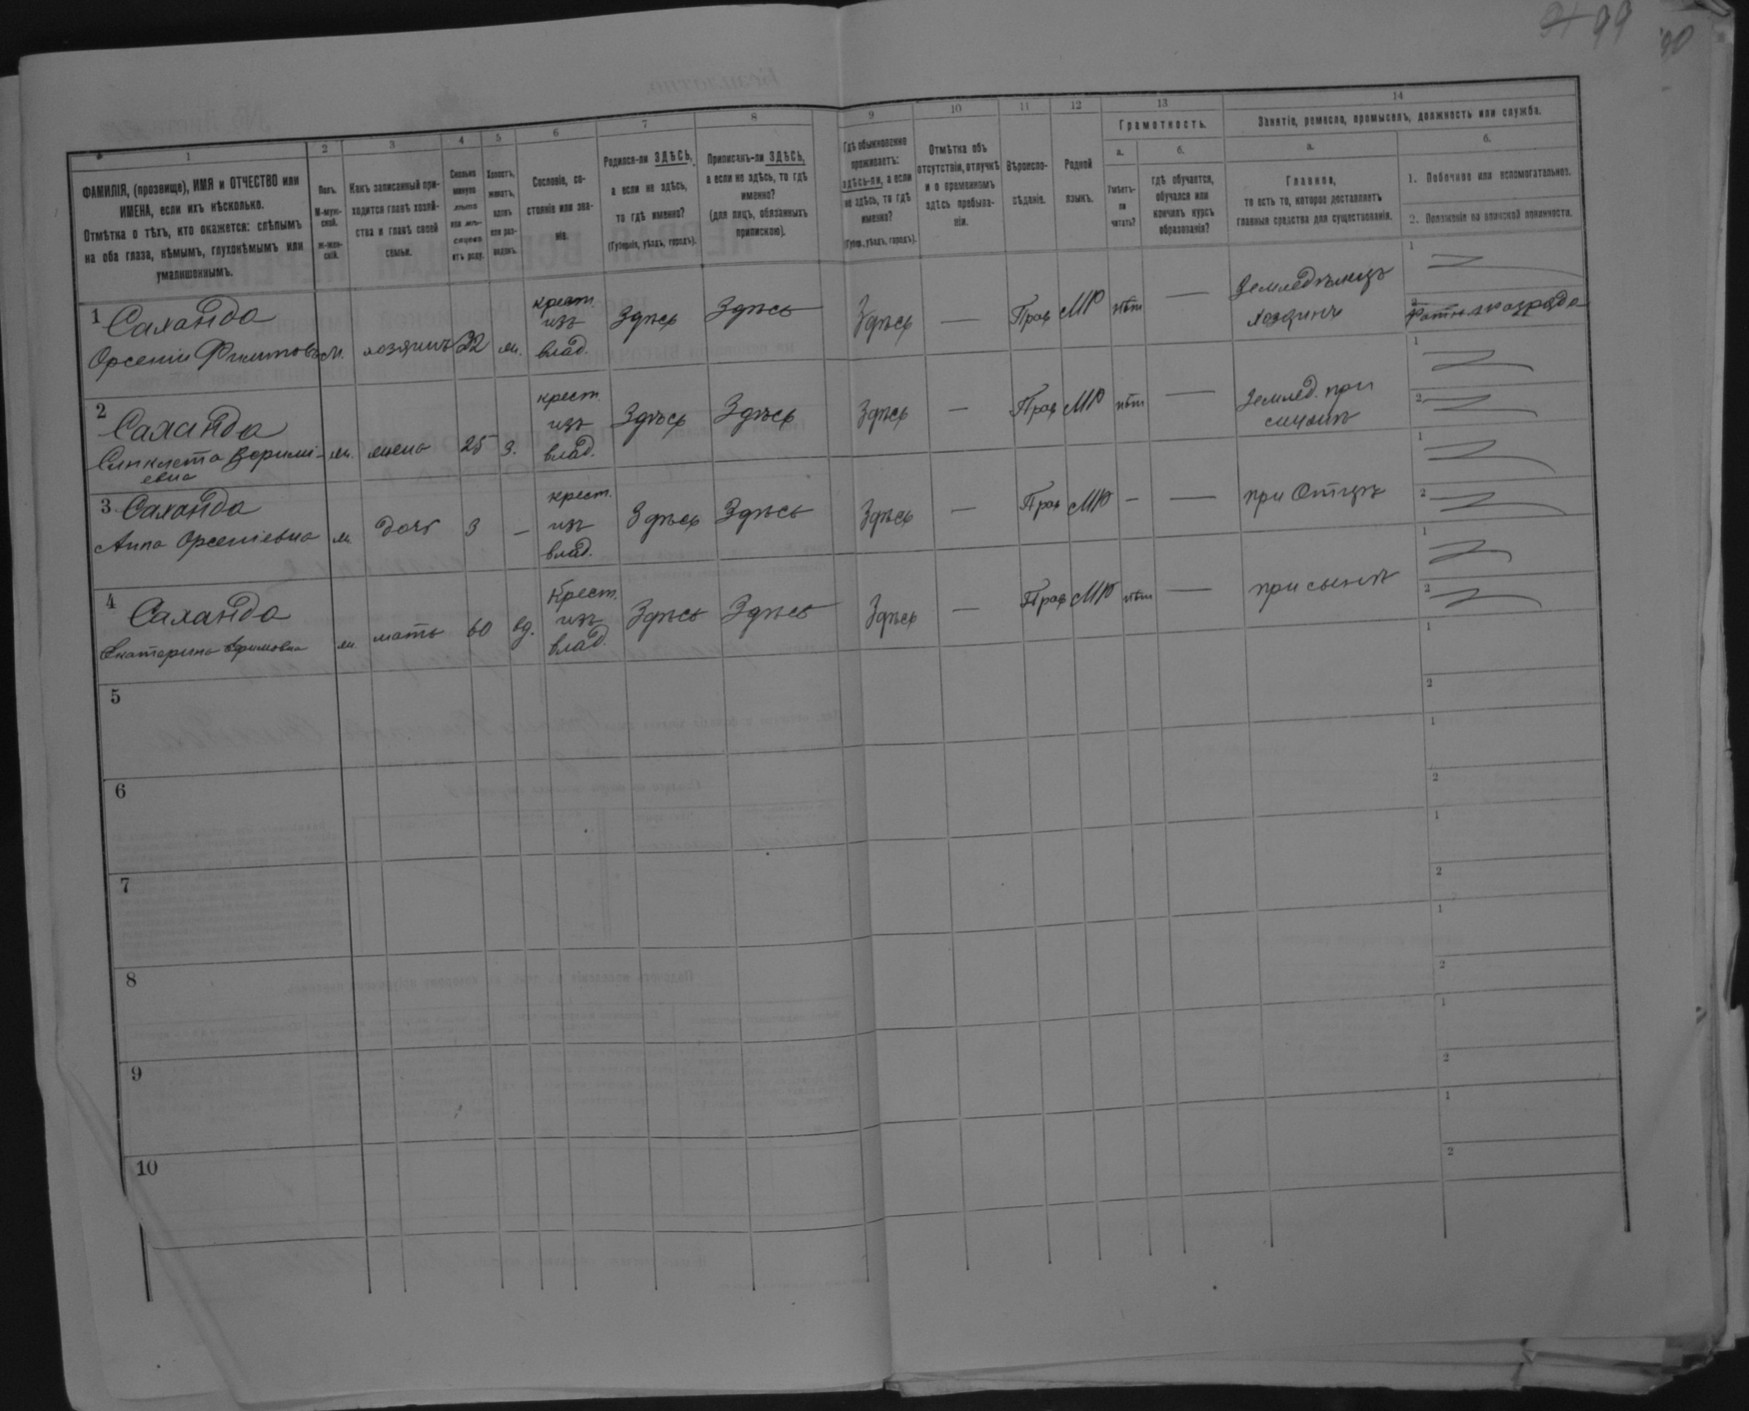 99
1 2 3 4 5 6 7 8 9 10 11 12 13 14
ФАМИЛІЯ, (прозвище), ИМЯ и ОТЧЕСТВО или
ИМЕНА, если ихъ нѣсколько.
Отмѣтка о тѣхъ, кто окажется: слѣпымъ
на оба глаза, нѣмымъ, глухонѣмымъ или
умалишоннымъ.
Полъ.
М-муж-
ской.
Ж-жен-
скій.
Какъ записанный при-
ходится главѣ хозяй-
ства и главѣ своей
семьи.
Сколько
минуло
лѣтъ
или мѣ-
сяцевъ
отъ роду.
Холостъ,
женатъ,
вдовъ
или раз-
веденъ.
Сословіе, со-
стояніе или зва-
ніе.
Родился-ли ЗДѢСЬ,
а если не здѣсь,
то гдѣ именно?
(Губернія, уѣздъ, городъ).
Приписанъ-ли ЗДѢСЬ,
а если не здѣсь, то гдѣ
именно?
(для лицъ, обязанныхъ
припискою).
Гдѣ обыкновенно
проживаетъ:
здѣсь-ли, а если
не здѣсь, то гдѣ
именно?
(Губер., уѣздъ, городъ).
Отмѣтка объ
отсутствіи, отлучкѣ
и о временномъ
здѣсь пребыва-
ніи.
Вѣроиспо-
вѣданіе.
Родной
языкъ.
Грамотность.
а.
Умѣетъ-
ли
читать?
б.
гдѣ обучается,
обучался или
кончилъ курсъ
образованія?
Занятіе, ремесло, промыселъ, должность или служба.
а.
Главное,
то есть то, которое доставляетъ
главныя средства для существованія.
б.
1. Побочное или вспомогательное.
2. Положеніе по воинской повинности.
1 Саланда
Орсеній Филиповъ М. хозяинъ 32 ж. крест. изъ влад. Здѣсь Здѣсь Здѣсь — Прав МР нѣт — Земледѣлецъ хозяинъ
1
2
2 Саланда
Синклета
евна ж. жена 25 з. крест. изъ влад. Здѣсь Здѣсь Здѣсь — Прав МР нѣт — Землед. при
1
2
3 Саланда
Анна Орсеніевна ж. дочь 3 — крест. изъ влад. Здѣсь Здѣсь Здѣсь — Прав МР — — при Отцѣ
1
2
4 Саланда
Екатерина Ефимовна ж. мать 60 вд. Крест. изъ влад. Здѣсь Здѣсь Здѣсь — Прав МР нѣт — при сынѣ
1
2
5
1
2
6
1
2
7
1
2
8
1
2
9
1
2
10
1
2